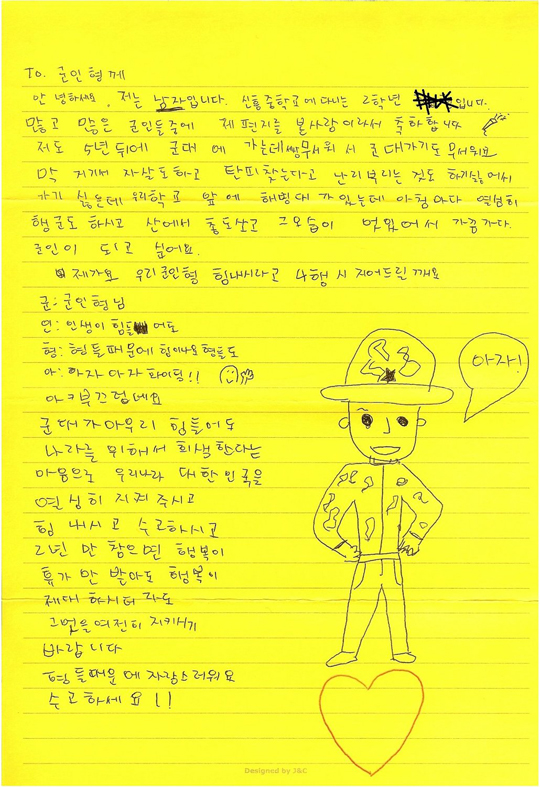 To. 군인형께
안녕하세요, 저는 남자입니다. 신흥중학교에 다니는 2학년 입니다.
많고 많은 군인들중에 제 편지를 본사람이라서 축하합니다
저도 5년 뒤에 군대에 가는데 무서워서 군대가기도 무서워요
막 거기서 자살도하고 탄피찾는다고 난리부리는 것도 하기싫어서
가기 싫은데 우리학교 앞에 해병대가 있는데 아침마다 열심히
행군도 하시고 산에서 총도쏘고 그모습이 멋있어서 가끔가다.
군인이 되고 싶어요.
제가요 우리군인형 힘내시라고 4행시 지어드릴께요
군: 군인형님
인: 인생이 힘들어도
형: 형들때문에 힘이나요 형들도
아: 아자 아자 파이팅!!
아 키부끄럽네요
군대가아무리 힘들어도
나라를 위해서 희생한다는
마음으로 우리나라 대한민국을
열심히 지켜주시고
힘 내시고 수고하시고
2년만 참으면 행복이
휴가만 받아도 행복이
제대 하시더라도
그멋을여전히 지키시기
바랍니다
형들때문에 자랑스러워요
수고하세요!!
아자!
Designed by J&C